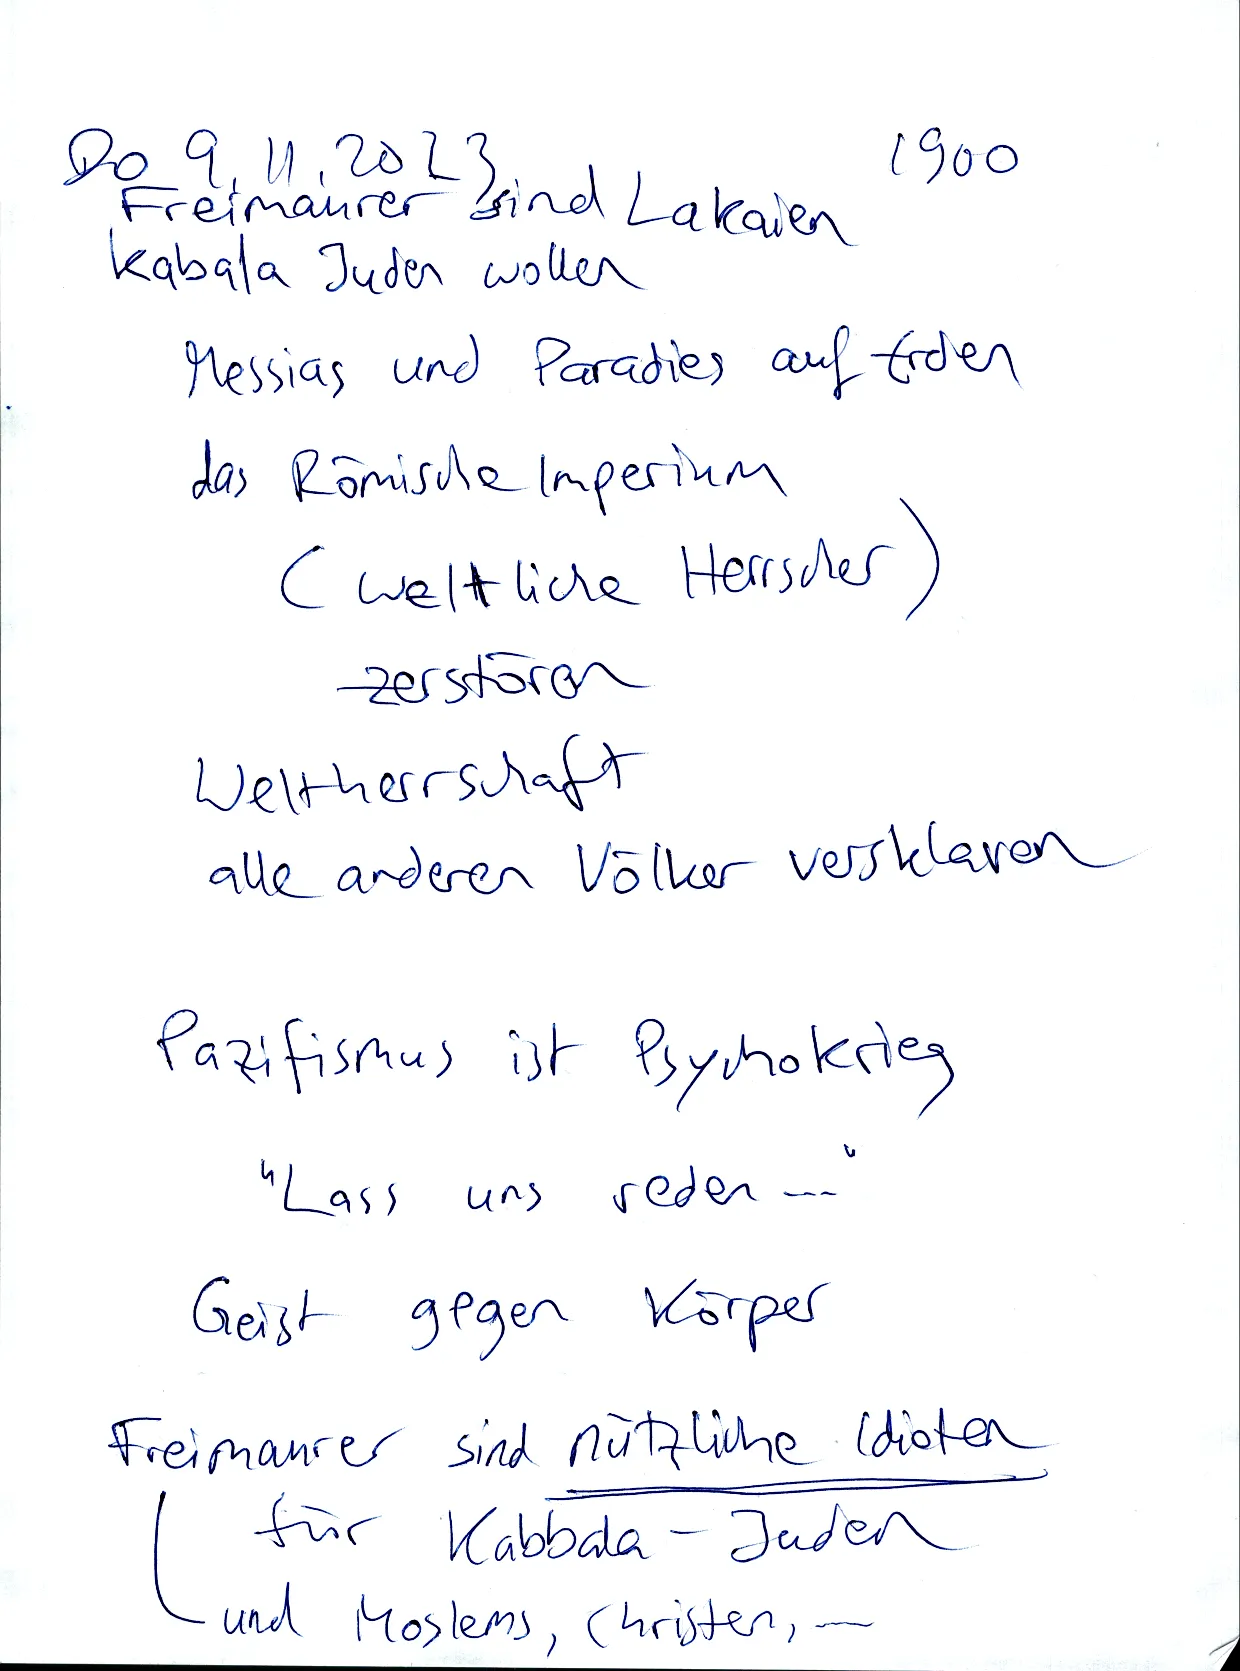 Do 9.11.2023 1900
Freimaurer sind Lakaien
Kabala Juden wollen
Messias und Paradies auf Erden
das Römische Imperium
(weltliche Herrscher)
zerstören
Weltherrschaft
alle anderen Völker versklaven
Pazifismus ist Psychokrieg
"Lass uns reden ---"
Geist gegen Körper
Freimaurer sind nützliche Idioten
für Kabbala - Juden
und Moslems, Christen, ---